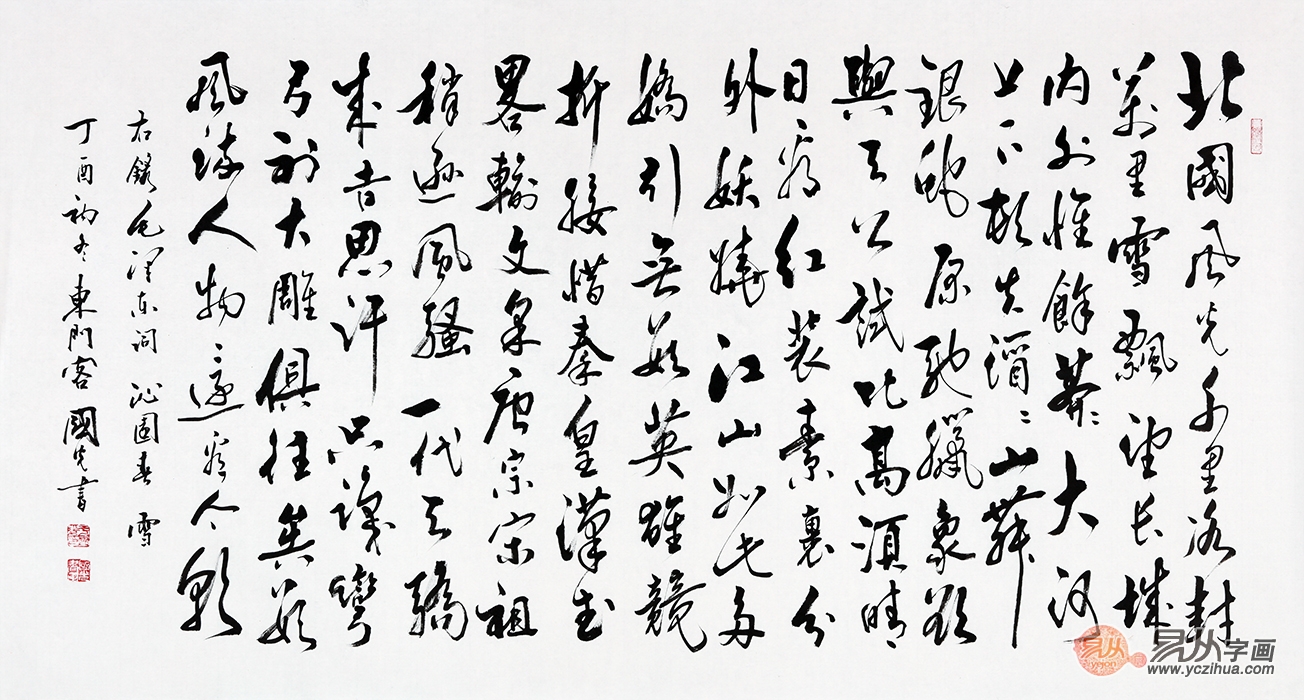 北國風光千里冰封
萬里雪飄望長城
内外惟餘莽〻大河
上下頓失滔〻山舞
銀蛇原馳臘象欲
與天公試比高須晴
日看紅裝素裹分
外妖嬈江山如此多
嬌引無數英雄競
折腰惜秦皇漢武
畧輸文采唐宗宋祖
稍遜風騷一代天驕
成吉思汗只識彎
弓射大雕俱往矣數
風流人物還看今朝
右錄毛澤東詞 沁園春 雪
丁酉初冬東門客國書
易从
易从字画
www.yczihua.com